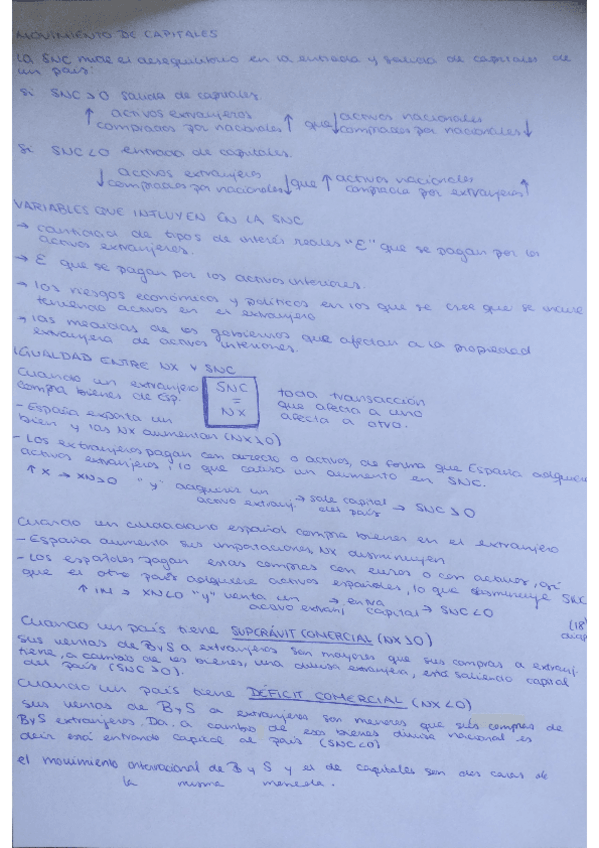 MOVIMIENTO DE CAPITALES
La SNC mide el desequilibrio en la entrada y salida de capitales de
un país:
Si SNC>0 salida de capitales
↑ activos extranjeros ↑ que ↓ activos nacionales ↓
comprados por nacionales comprados por nacionales
Si SNC<0 entrada de capitales.
↓ activos extranjeros ↓ que ↑ activos nacionales ↑
comprados por nacionales comprados por extranjeros
VARIABLES QUE INFLUYEN EN LA SNC
→ cantidad de tipos de interés reales "E" que se pagan por los
activos extranjeros.
→ E que se pagan por los activos interiores.
→ los riesgos económicos y políticos en los que se cree que se incurre
teniendo activos en el extranjero
→ las medidas de los gobiernos que afectan a la propiedad
extranjera de activos interiores.
IGUALDAD ENTRE NX Y SNC
Cuando un extranjero
compra bienes de Esp.
SNC
=
NX
toda transacción
que afecta a uno
afecta a otro.
- España exporta un
bien y las NX aumentan (NX>0)
- Los extranjeros pagan con dinero o activos, de forma que España adquiere
activos extranjeros, lo que causa un aumento en SNC.
↑ X → XN>0 "y" adquiere un → sale capital → SNC>0
activo extranj. del país
Cuando un ciudadano español compra bienes en el extranjero
- España aumenta sus importaciones, NX disminuyen
- Los españoles pagan estas compras con euros o con activos, así
que el otro país adquiere activos españoles, lo que disminuye SNC
↑ IM → XN<0 "y" venta un → entra → SNC<0
activo extranj capital
(18)
Cuando un país tiene SUPERÁVIT COMERCIAL (NX>0)
sus ventas de ByS a extranjeros son mayores que sus compras a extranj.
tiene, a cambio de los bienes, una divisa extranjera, está saliendo capital
del país (SNC>0).
Cuando un país tiene DÉFICIT COMERCIAL (NX<0)
sus ventas de ByS a extranjeros son menores que sus compras de
ByS extranjeros. Da a cambio de esos bienes divisa nacional es
decir está entrando capital de país (SNC<0)
el movimiento internacional de B y S y el de capitales son dos caras de
la misma moneda.